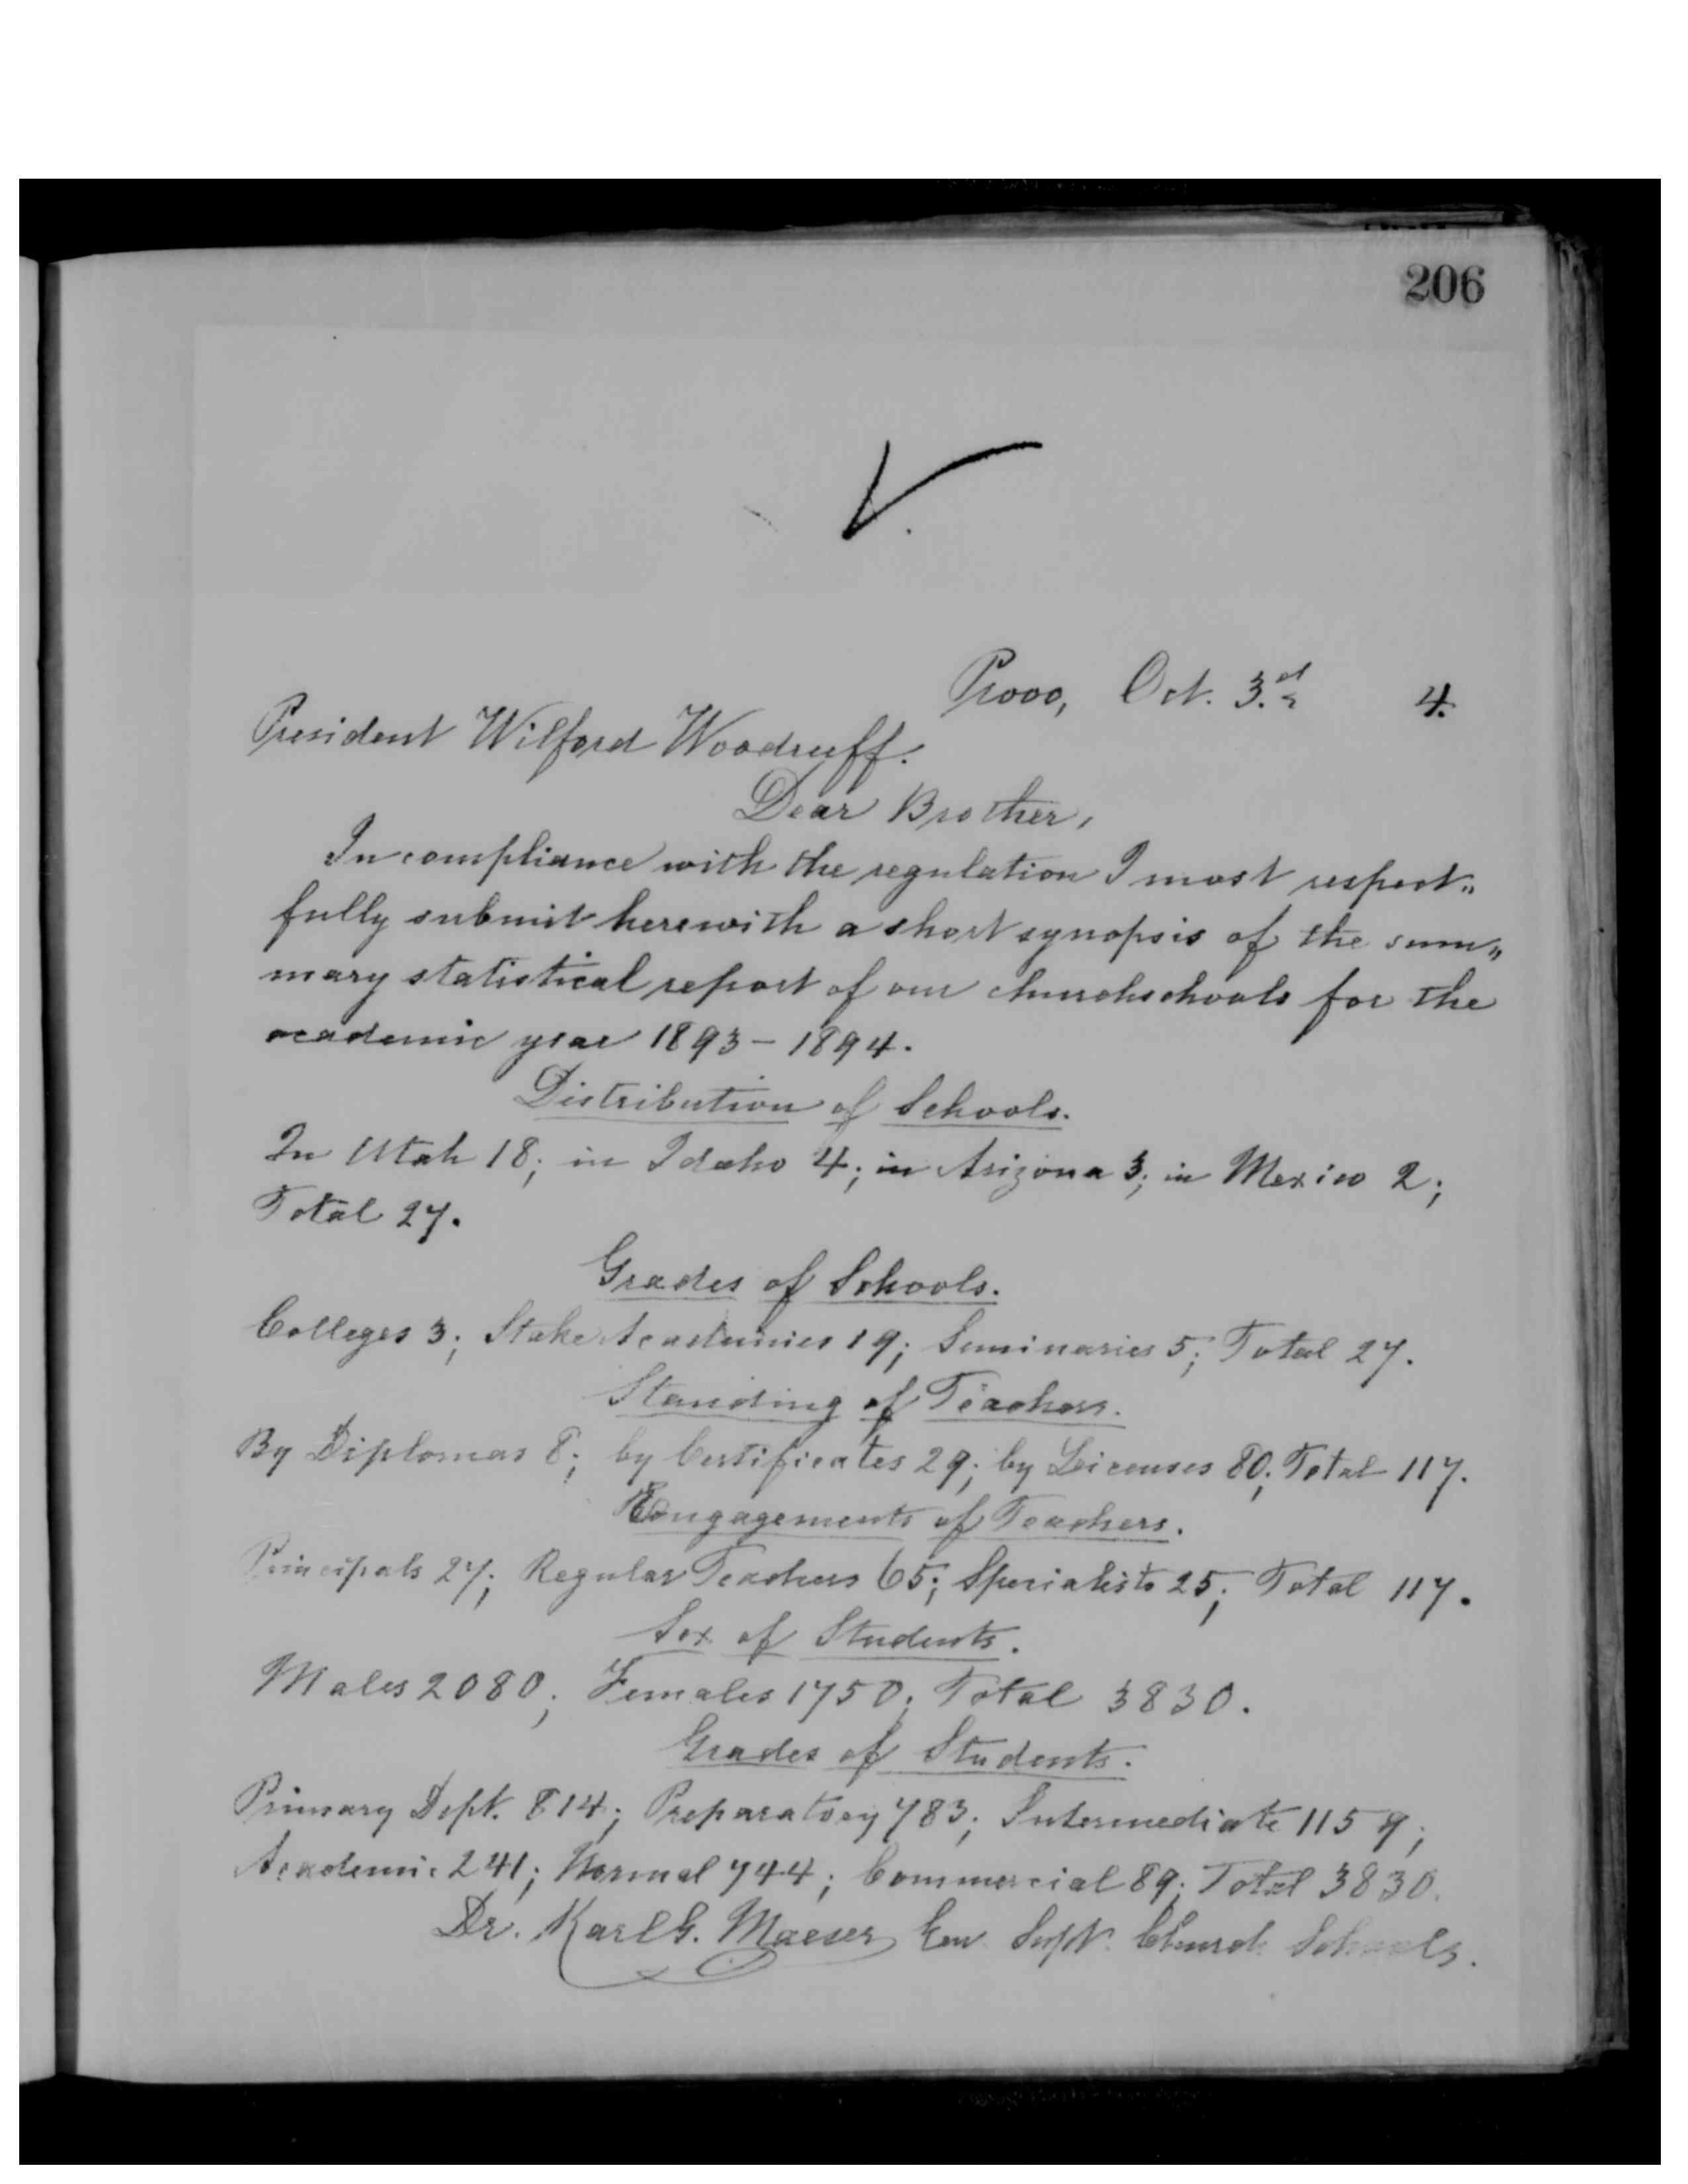 206
Provo, Oct. 3.d 4.
President Wilford Woodruff.
Dear Brother,
In compliance with the regulation I most respect„
fully submit herewith a short synopsis of the sum„
mary statistical report of our churchschools for the
academic year 1893 – 1894.
Distribution of Schools.
In Utah 18; in Idaho 4; in Arizona 3; in Mexico 2;
Total 27.
Grades of Schools.
Colleges 3; Stake Academies 19; Seminaries 5; Total 27.
Standing of Teachers.
By Diplomas 8; by Certificates 29; by Licenses 80; Total 117.
Engagements of Teachers.
Principals 27; Regular Teachers 65; Specialists 25; Total 117.
Sex of Students.
Males 2080; Females 1750; Total 3830.
Grades of Students.
Primary Dept. 814; Preparatory 783; Intermediate 1159;
Academic 241; Normal 744; Commercial 89; Total 3830.
Dr. Karl G. Maeser Gen. Supt. Church Schools.